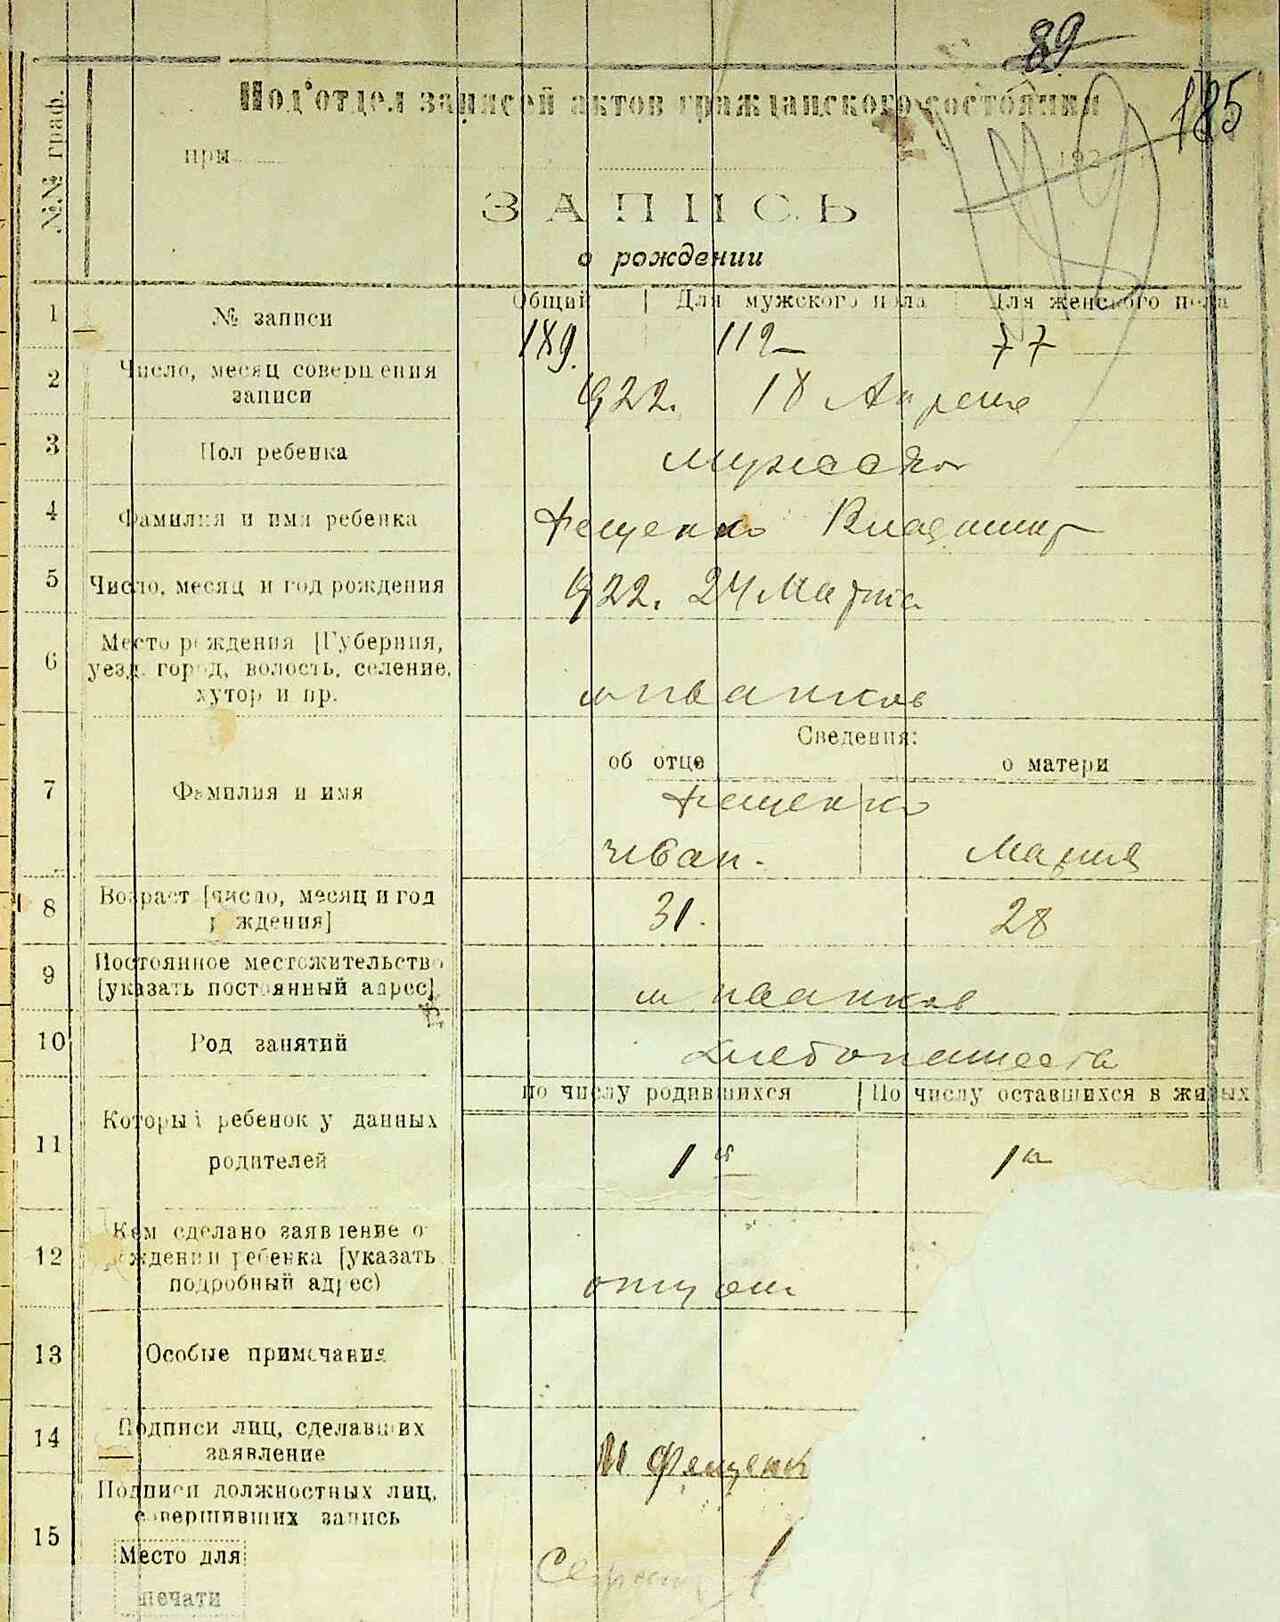 89
185
Под'отдел записей актов гражданского состояния
при 192
ЗАПИСЬ
о рождении
№№ граф.
Общий Для мужского пола Для женского пола
1 № записи 189. 112 77
2 Число, месяц совершения
записи 922. 18 Апреля
3 Пол ребенка мужской
4 Фамилия и имя ребенка Фещенко Владимир
5 Число, месяц и год рождения 922. 24 Марта
6 Место рождения [Губерния,
уезд. город, волость, селение,
хутор и пр. м Иванков
Сведения:
об отце о матери
7 Фамилия и имя Фещенко
Иван. Мария
8 Возраст [число, месяц и год
рождения] 31. 28
9 Постоянное местожительство
[указать постоянный адрес] м Иванков
10 Род занятий хлебопашество
по числу родившихся По числу оставшихся в живых
11 Который ребенок у данных
родителей 1й 1й
12 Кем сделано заявление о
рождении ребенка [указать
подробный адрес) отцом
13 Особые примечания
14 Подписи лиц, сделавших
заявление И Фещенк
15 Подписи должностных лиц,
совершивших запись
Место для
печати